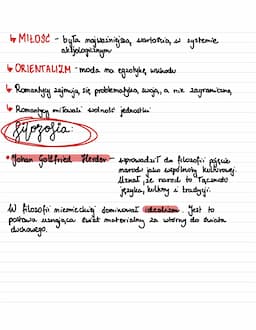 ↳ MIŁOŚĆ - była najważniejszą wartością w systemie
aksjologicznym
↳ ORIENTALIZM - moda na egzotykę wschodu
↳ Romantycy zajmują się problematyką swoją, a nie zagraniczną
↳ Romantycy miłowali wolność jednostki
filozofia:
• Johan Gottfried Herder - wprowadził do filozofii pojęcie
narodu jako wspólnoty kulturowej.
Uznał, że naród to łączność
języka, kultury i tradycji.
W filozofii niemieckiej dominował idealizm. Jest to
postawa uznająca świat materialny za wtórny do świata
duchowego.